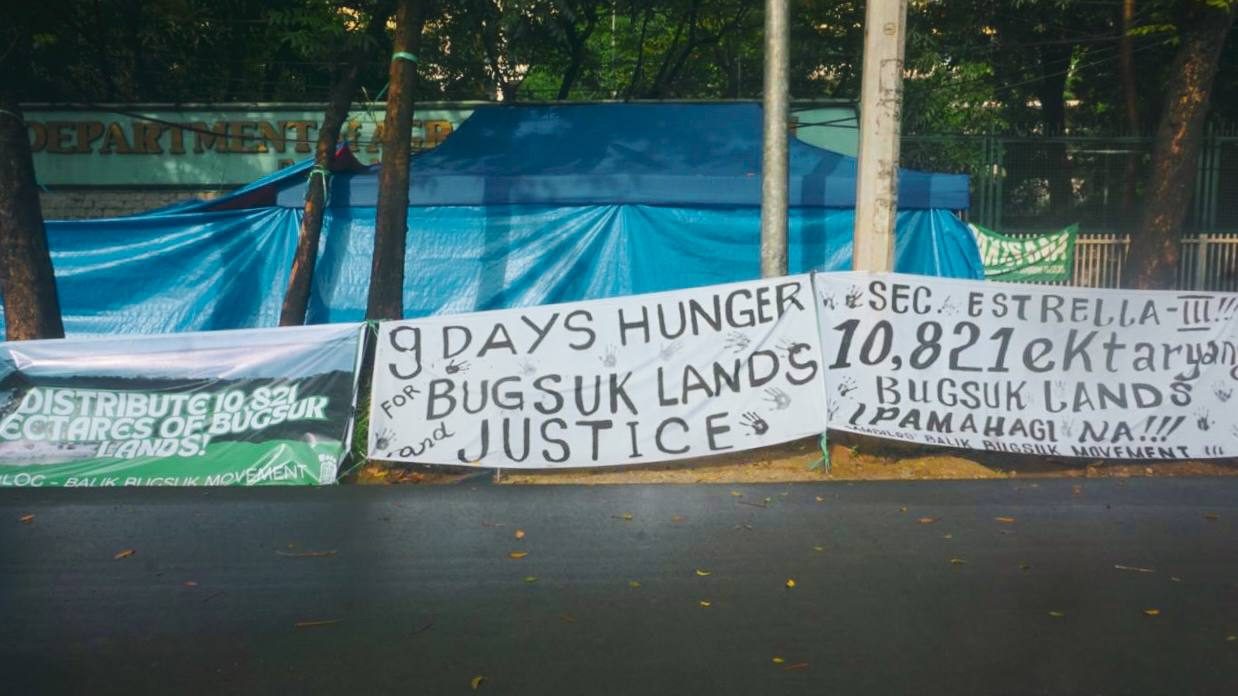 DEPARTMENT
DISTRIBUTE 10,821
ECTARES OF BUGSUK
LANDS!
LOG - BALIK BUGSUK MOVEMENT
9 DAYS HUNGER
FOR BUGSUK LANDS
and JUSTICE
SEC. ESTRELLA-III!!!
10,821 eKtaryang
BUGSUK LANDS
IPAMAHAGI NA!!!
SAMBILOG' BALIK BUGSUK MOVEMENT !!!